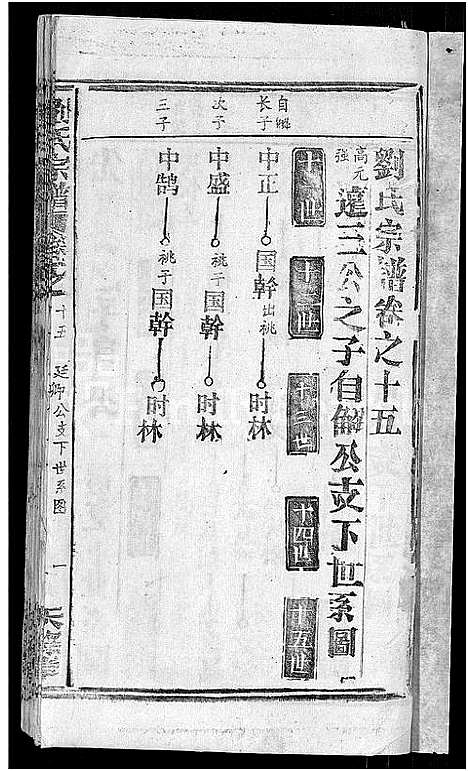 劉氏宗譜卷之十五
高元强 達三公之子自解公支下世系圖
十一世 十二世 十三世 十四世 十五世
自解 长子 中正 国幹 出桃 时林
次子 中盛 桃子 国幹 时林
三子 中鹄 桃子 国幹 时林
劉氏宗譜 卷之十五 廷卿公支下世系图 一